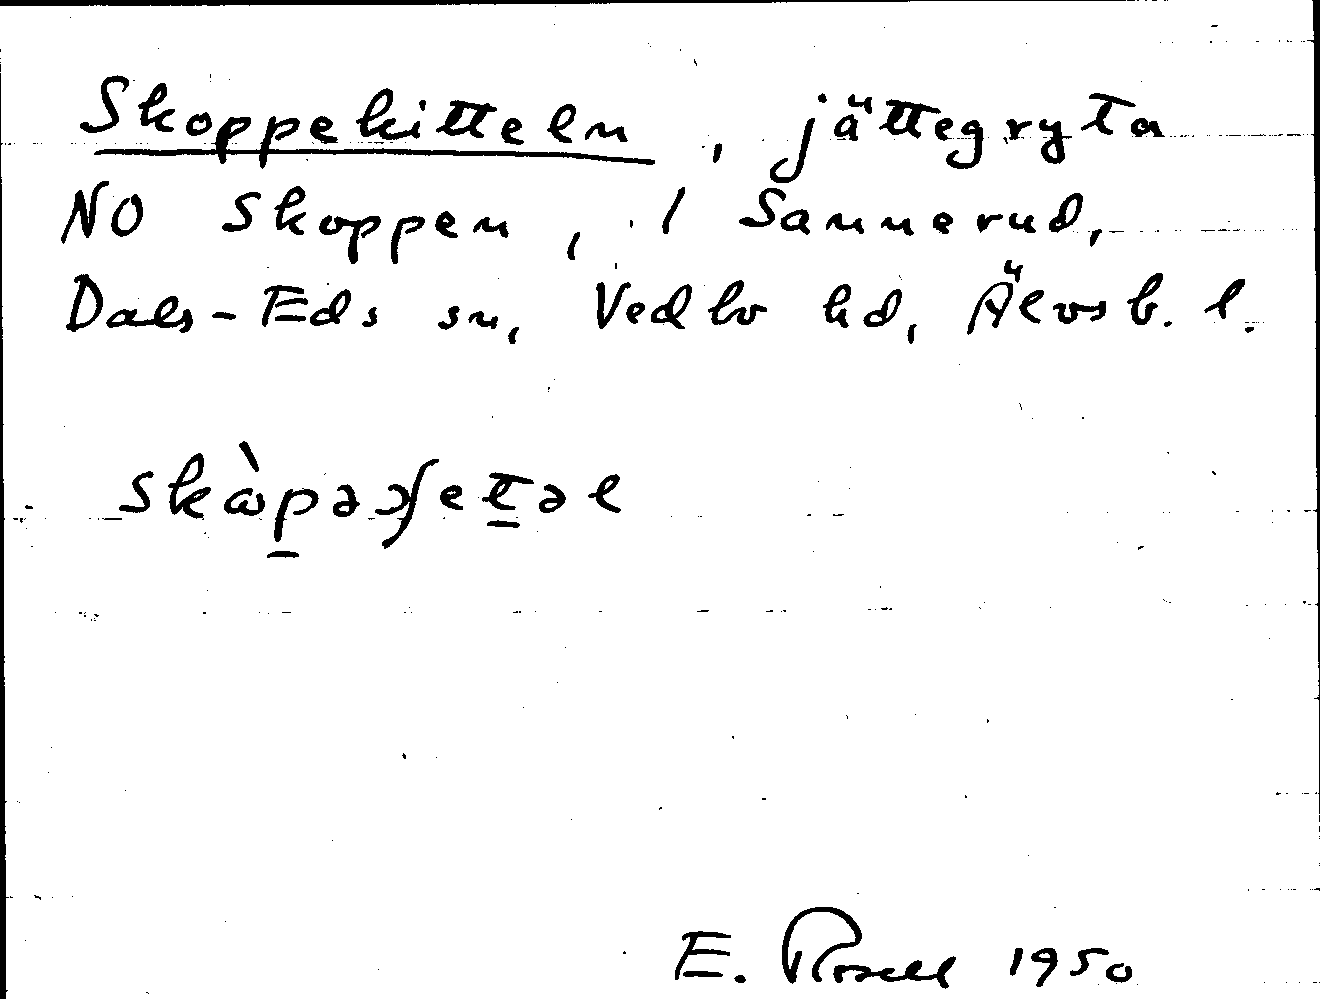 Skoppekitteln, jättegryta
NO Skoppen, / Sannerud,
Dals-Eds sn, Vedbo hd, Älvsb. l.
skὼpəɔʃetəl
E. Rosell 1950